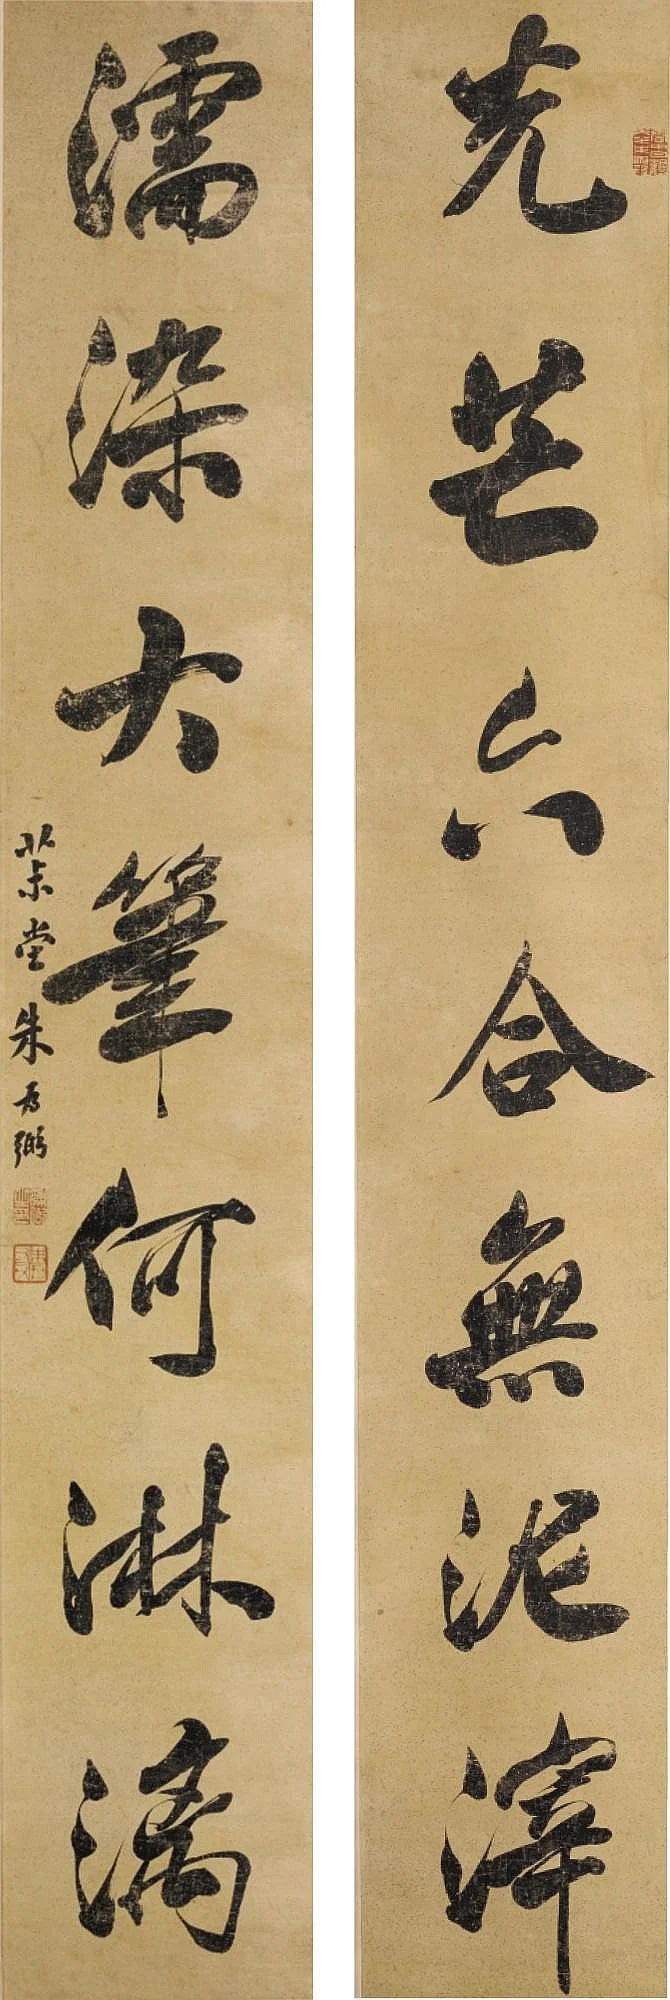 光芒六合無泥滓
濡染大筆何淋漓
茮堂朱為弼